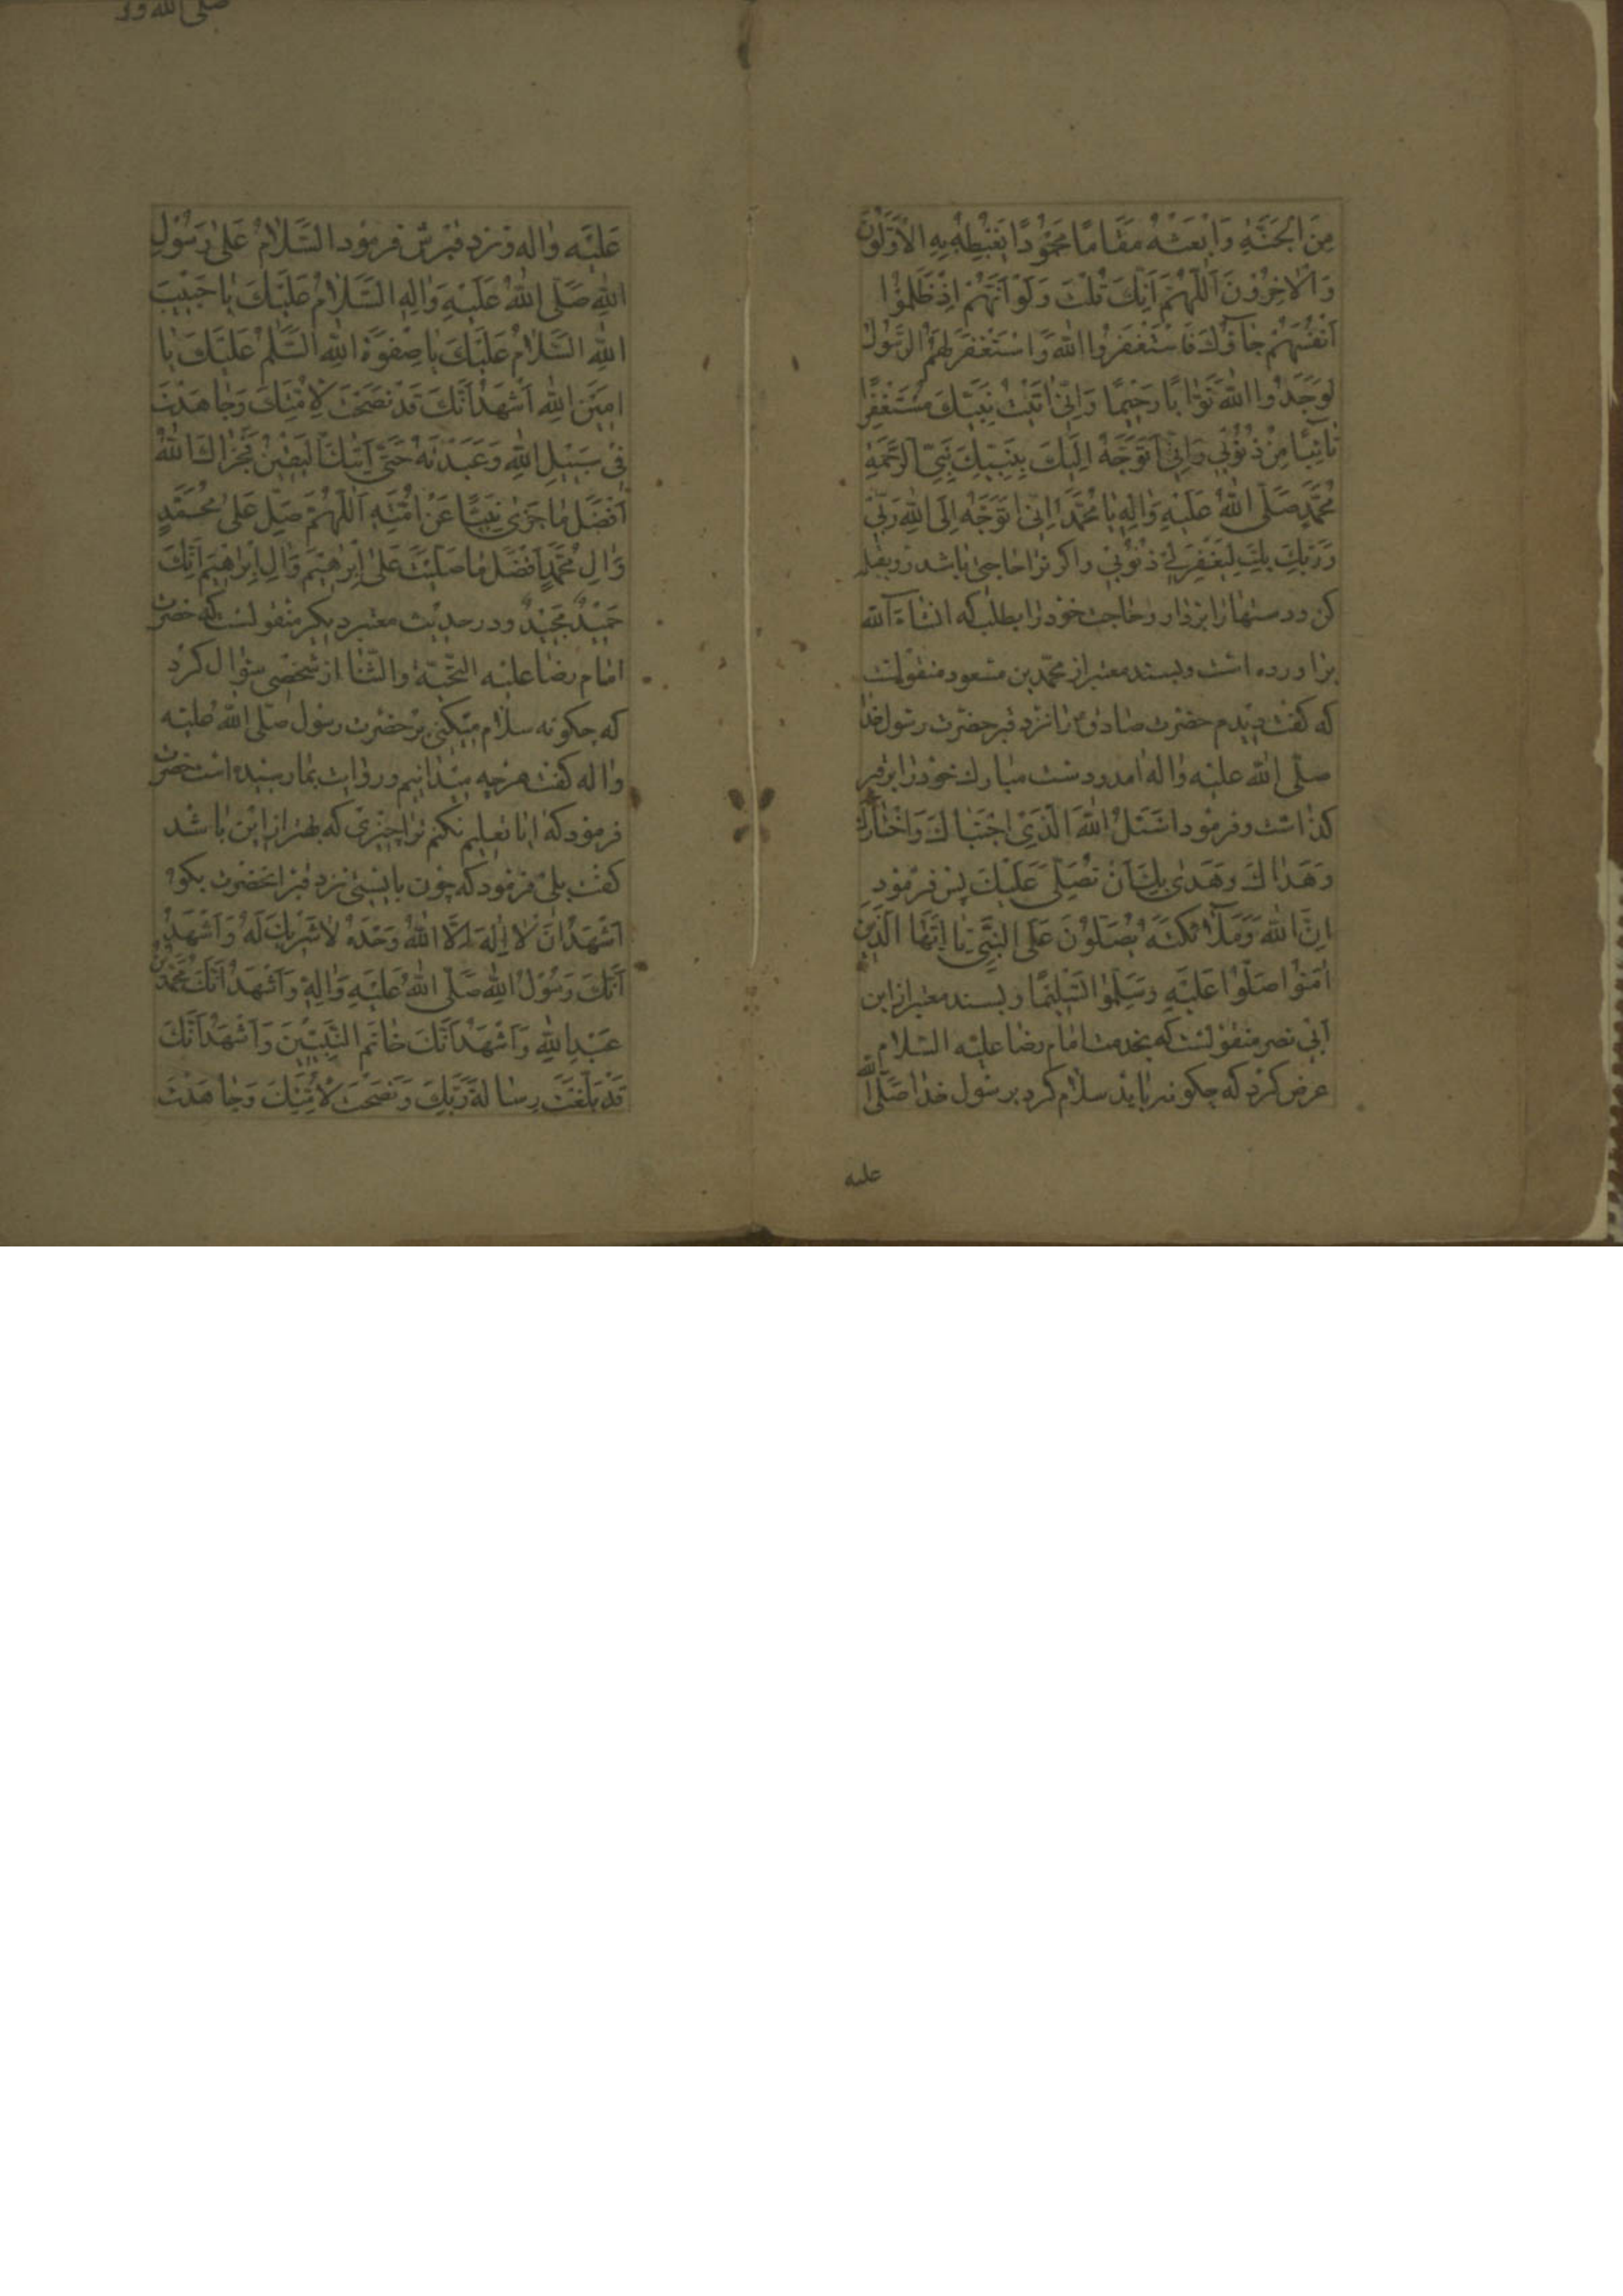 مِنَ الْجَنَّةِ وَابْعَثْهُ مَقَامًا مَحْمُودًا يَغْبِطُهُ بِهِ الْاَوَّلُونَ
وَالْاٰخِرُونَ اَللّٰهُمَّ اِنَّكَ قُلْتَ وَلَوْ اَنَّهُمْ اِذْ ظَلَمُوْا
اَنْفُسَهُمْ جَاؤُكَ فَاسْتَغْفَرُوا اللّٰهَ وَاسْتَغْفَرَ لَهُمُ الرَّسُولُ
لَوَجَدُوا اللّٰهَ تَوَّابًا رَحِيمًا وَاِنّى اَتَيْتُ نَبِيَّكَ مُسْتَغْفِرًا
تَائِبًا مِنْ ذُنُوْبِي وَاِنِّي اَتَوَجَّهُ اِلَيْكَ بِنَبِيِّكَ نَبِيِّ الرَّحْمَةِ
مُحَمَّدٍ صَلَّى اللّٰهُ عَلَيْهِ وَاٰلِهِ يَا مُحَمَّدُ اِنّى اَتَوَجَّهُ اِلَى اللّٰهِ رَبِّي
وَرَبِّكَ بِكَ لِيَغْفِرَ لِي ذُنُوبِي واكر ترا حاجتى باشد رو بقبله
كن ودستها را بردار وحاجت خود را بطلب كه انشاءالله
براورده است وبسند معتبر از محمّد بن مسعود منقولست
كه كفت ديدم حضرت صادق ع را نزد قبر حضرت رسول خدا
صلّى الله عليه واله امد ودست مبارك خود را بر قبر
كذاشت وفرمود اَسْئَلُ اللّٰهَ الَّذِي اجْتَبَاكَ وَاخْتَارَكَ
وَهَدَاكَ وَهَدٰى بِكَ اَنْ يُصَلِّيَ عَلَيْكَ پس فرمود
اِنَّ اللّٰهَ وَمَلٰٓائِكَتَهُ يُصَلُّوْنَ عَلَى النَّبِيِّ يَا اَيُّهَا الَّذِينَ
اٰمَنُوْا صَلُّوْا عَلَيْهِ وَسَلِّمُوا تَسْلِيمًا وبسند معتبر از ابن
اَبِي نصر منقولست كه بخدمت امام رضا عليه السّلام
عرض كرد كه چكونه بايد سلام كرد بر رسول خدا صَلَّى اللّٰه
عليه
عَلَيْهِ وَاله ونزد قبرش فرمود السَّلَامُ عَلٰى رَسُوْلِ
اللّٰهِ صَلَّى اللّٰهُ عَلَيْهِ وَاٰلِهِ السَّلَامُ عَلَيْكَ يَا حَبِيْبَ
اللّٰهِ السَّلَامُ عَلَيْكَ يَا صِفْوَةَ اللّٰهِ السَّلٰمُ عَلَيْكَ يَا
اَمِيْنَ اللّٰهِ اَشْهَدُ اَنَّكَ قَدْ نَصَحْتَ لِاُمَّتِكَ وَجَاهَدْتَ
فِي سَبِيْلِ اللّٰهِ وَعَبَدْتَهُ حَتّٰى اَتٰيكَ الْيَقِيْنُ فَجَزَاكَ اللّٰهُ
اَفْضَلَ مَا جَزٰى نَبِيًّا عَنْ اُمَّتِهِ اَللّٰهُمَّ صَلِّ عَلٰى مُحَمَّدٍ
وَاٰلِ مُحَمَّدٍ اَفْضَلَ مَا صَلَّيْتَ عَلٰى اِبْرٰهِيْمَ وَاٰلِ اِبْرٰهِيْمَ اِنَّكَ
حَمِيْدٌ مَجِيْدٌ ودر حديث معتبر ديكر منقولست كه حضرت
امام رضا عليه التحيّة والثّنا از شخصى سؤال كرد
كه چكونه سلام ميكنى بر حضرت رسول صلّى الله عليه
واله كفت هر چه ميدانيم وروايت بما رسيده است حضرت
فرمود كه ايا تعليم نكنم ترا چيزى كه بهتر از اين باشد
كفت بلى فرمود كه چون بايستى نزد قبر انحضرت بكو
اَشْهَدُ اَنْ لَا اِلٰهَ اِلَّا اللّٰهُ وَحْدَهُ لَا شَرِيْكَ لَهُ وَاَشْهَدُ
اَنَّكَ رَسُوْلُ اللّٰهِ صَلَّى اللّٰهُ عَلَيْهِ وَاٰلِهِ وَاَشْهَدُ اَنَّكَ مُحَمَّدُ بْنُ
عَبْدِ اللّٰهِ وَاَشْهَدُ اَنَّكَ خَاتَمُ النَّبِيِّيْنَ وَاَشْهَدُ اَنَّكَ
قَدْ بَلَّغْتَ رِسَالَةَ رَبِّكَ وَنَصَحْتَ لِاُمَّتِكَ وَجَاهَدْتَ